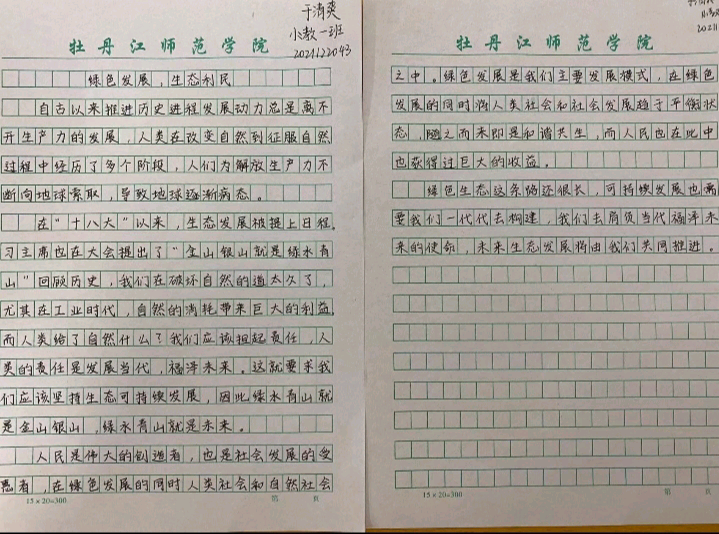 于清爽
小教一班
2021122043
牡丹江师范学院
绿色发展，生态利民
自古以来推进历史进程发展动力总是离不
开生产力的发展，人类在改变自然到征服自然
过程中经历了多个阶段，人们为解放生产力不
断向地球索取，导致地球逐渐病态。
在“十八大”以来，生态发展被提上日程，
习主席也在大会提出了“金山银山就是绿水青
山”回顾历史，我们在破坏自然的道太久了，
尤其在工业时代，自然的消耗带来巨大的利益，
而人类给了自然什么？我们应该担起责任，人
类的责任是发展当代，福泽未来。这就要求我
们应该坚持生态可持续发展，因此绿水青山就
是金山银山，绿水青山就是未来。
人民是伟大的创造者，也是社会发展的受
惠者，在绿色发展的同时人类社会和自然社会
15×20=300 第 页
牡丹江师范学院
之中。绿色发展是我们主要发展模式，在绿色
发展的同时将人类社会和社会发展趋于平衡状
态，随之而来即是和谐共生，而人民也在此中
也获得过巨大的收益。
绿色生态这条路还很长，可持续发展也需
要我们一代代去构建，我们去肩负当代福泽未
来的使命，未来生态发展将由我们共同推进。
15×20=300 第 页